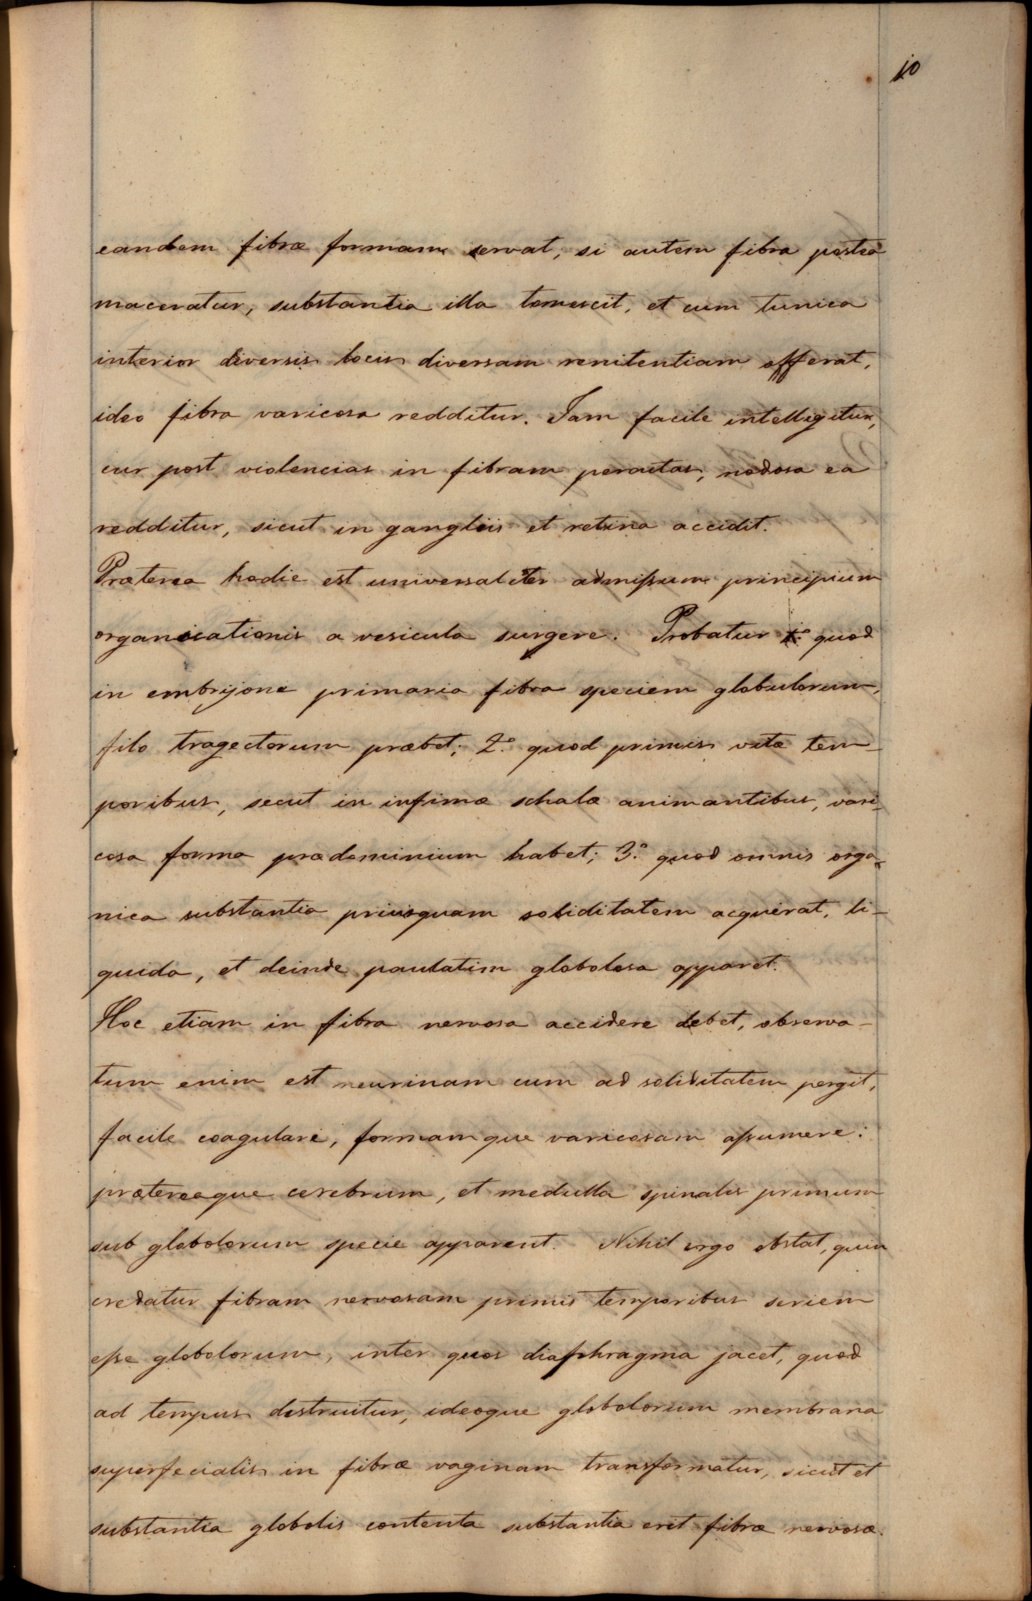 10
eandem fibræ formam servat, si autem fibra postea
maceratur, substantia illa tumescit, et cum tunica
interior diversis locis diversam renitentiam offerat,
ideo fibra varicosa redditur. Jam facile intelligitur,
cur post violencias in fibram peractas, nodosa ea
redditur, sicut in gangliis et retina accidit.
Præterea hodie est universaliter admissum principium
organizationis a vesicula surgere. Probatur 1.º quod
in embrijone primaria fibra speciem globulorum,
filo tragectorum præbet; 2.º quod primis vitæ tem-
poribus, secut in infimæ schalæ animantibus, vari-
cosa forma prædominium habet; 3.º quod omnis orga-
nica substantia priusquam soliditatem acquirat, li-
quida, et deinde paulatim globolosa apparet.
Hoc etiam in fibra nervosa accidere debet, observa-
tum enim est neurinam cum ad soliditatem pergit,
facile coagulari, formamque varicosam assumere:
prætereaque cerebrum, et medulla spinalis primum
sub globolorum specie apparent. Nihil ergo obstat, quin
credatur fibram nervosam primis temporibus seriem
esse globolorum, inter quos diaphragma jacet, quod
ad tempus destruitur, ideoque globolorum membrana
superfecialis in fibræ vaginam transformatur, sicut et
substantia globolis contenta substantia erit fibræ nervosæ.